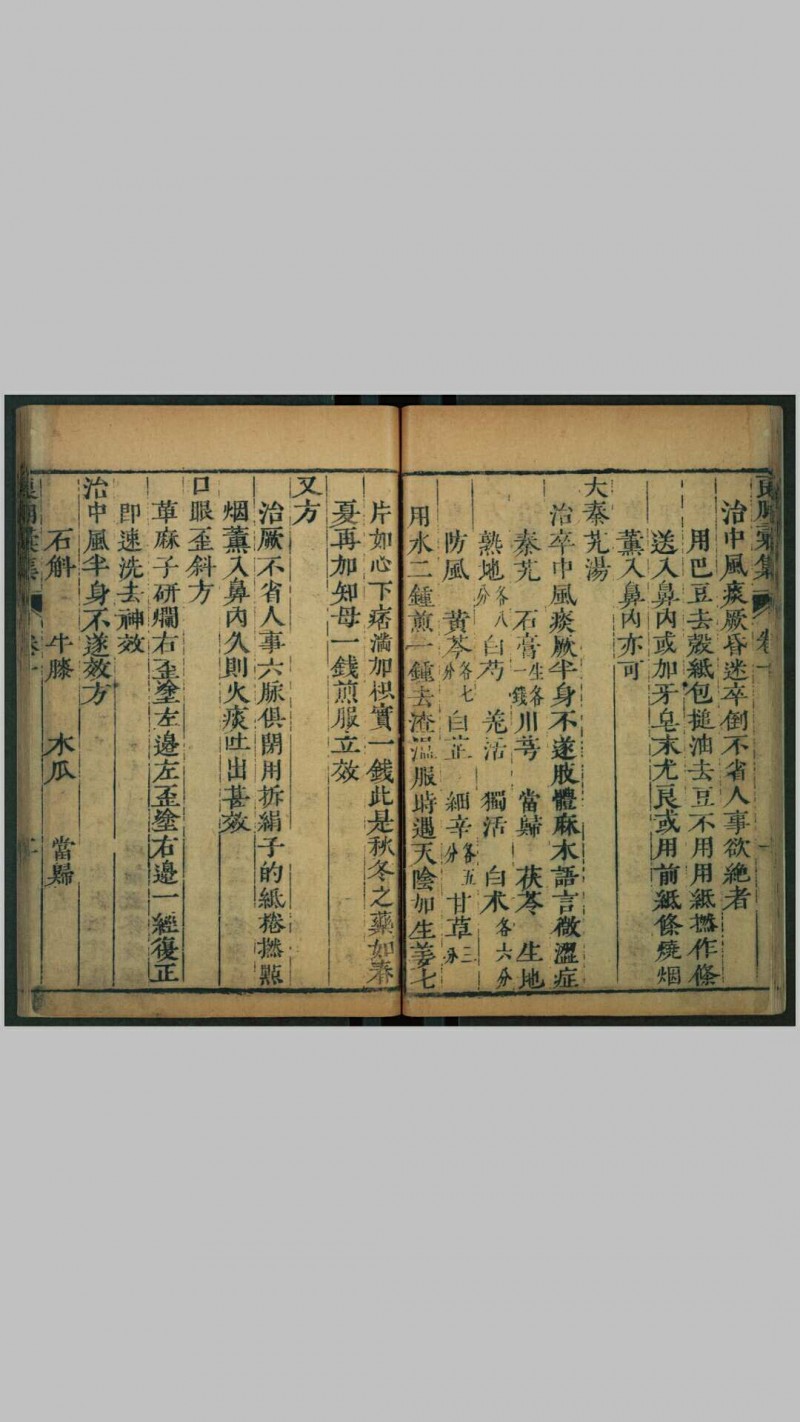 治中風痰厥昏迷卒倒不省人事欲絶者
用巴豆去殼紙包搥油去豆不用用紙撚作條
送入鼻内或加牙皂末尤良或用前紙條燒烟
薰入鼻内亦可
大秦艽湯
治卒中風痰厥半身不遂肢體麻木語言微澀症
秦艽 石膏生各一錢 川芎 當歸 茯苓 生地
熟地各八分 白芍 羌活 獨活 白术各六分
防風 黄芩各七分 白芷 細辛各五分 甘草三分
用水二鍾煎一鍾去渣温服時遇天陰加生姜七
片如心下痞滿加枳實一錢此是秋冬之藥如春
夏再加知母一錢煎服立效
又方
治厥不省人事六脉俱閉用拆絹子的紙捲撚㸃
烟薰入鼻内久則火痰吐出甚效
口眼歪斜方
草麻子研爛右歪塗左邊左歪塗右邊一經復正
即速洗去神效
治中風半身不遂效方
石斛 牛膝 木瓜 當歸